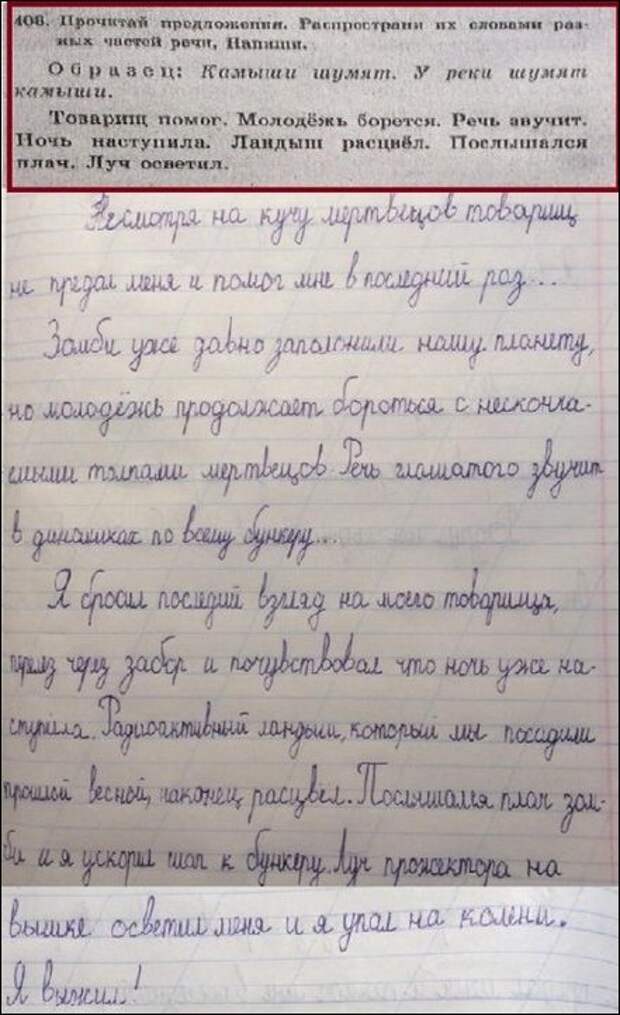 408. Прочитай предложения. Распространи их словами раз-
ных частей речи. Напиши.
Образец: Камыши шумят. У реки шумят
камыши.
Товарищ помог. Молодёжь борется. Речь звучит.
Ночь наступила. Ландыш расцвёл. Послышался
плач. Луч осветил.
Несмотря на кучу мертвецов товарищ
не предал меня и помог мне в последний раз...
Зомби уже давно заполонили нашу планету,
но молодёжь продолжает бороться с нескончае-
мыми толпами мертвецов. Речь глашатого звучит
в динамиках по всему бункеру...
Я бросил последий взгляд на моего товарища,
перелез через забор и почувствовал что ночь уже на-
ступила. Радиоактивный ландыш, который мы посадили
прошлой весной, наконец расцвел. Послышался плач зом-
би и я ускорил шаг к бункеру. Луч прожектора на
вышке осветил меня и я упал на колени.
Я выжил!